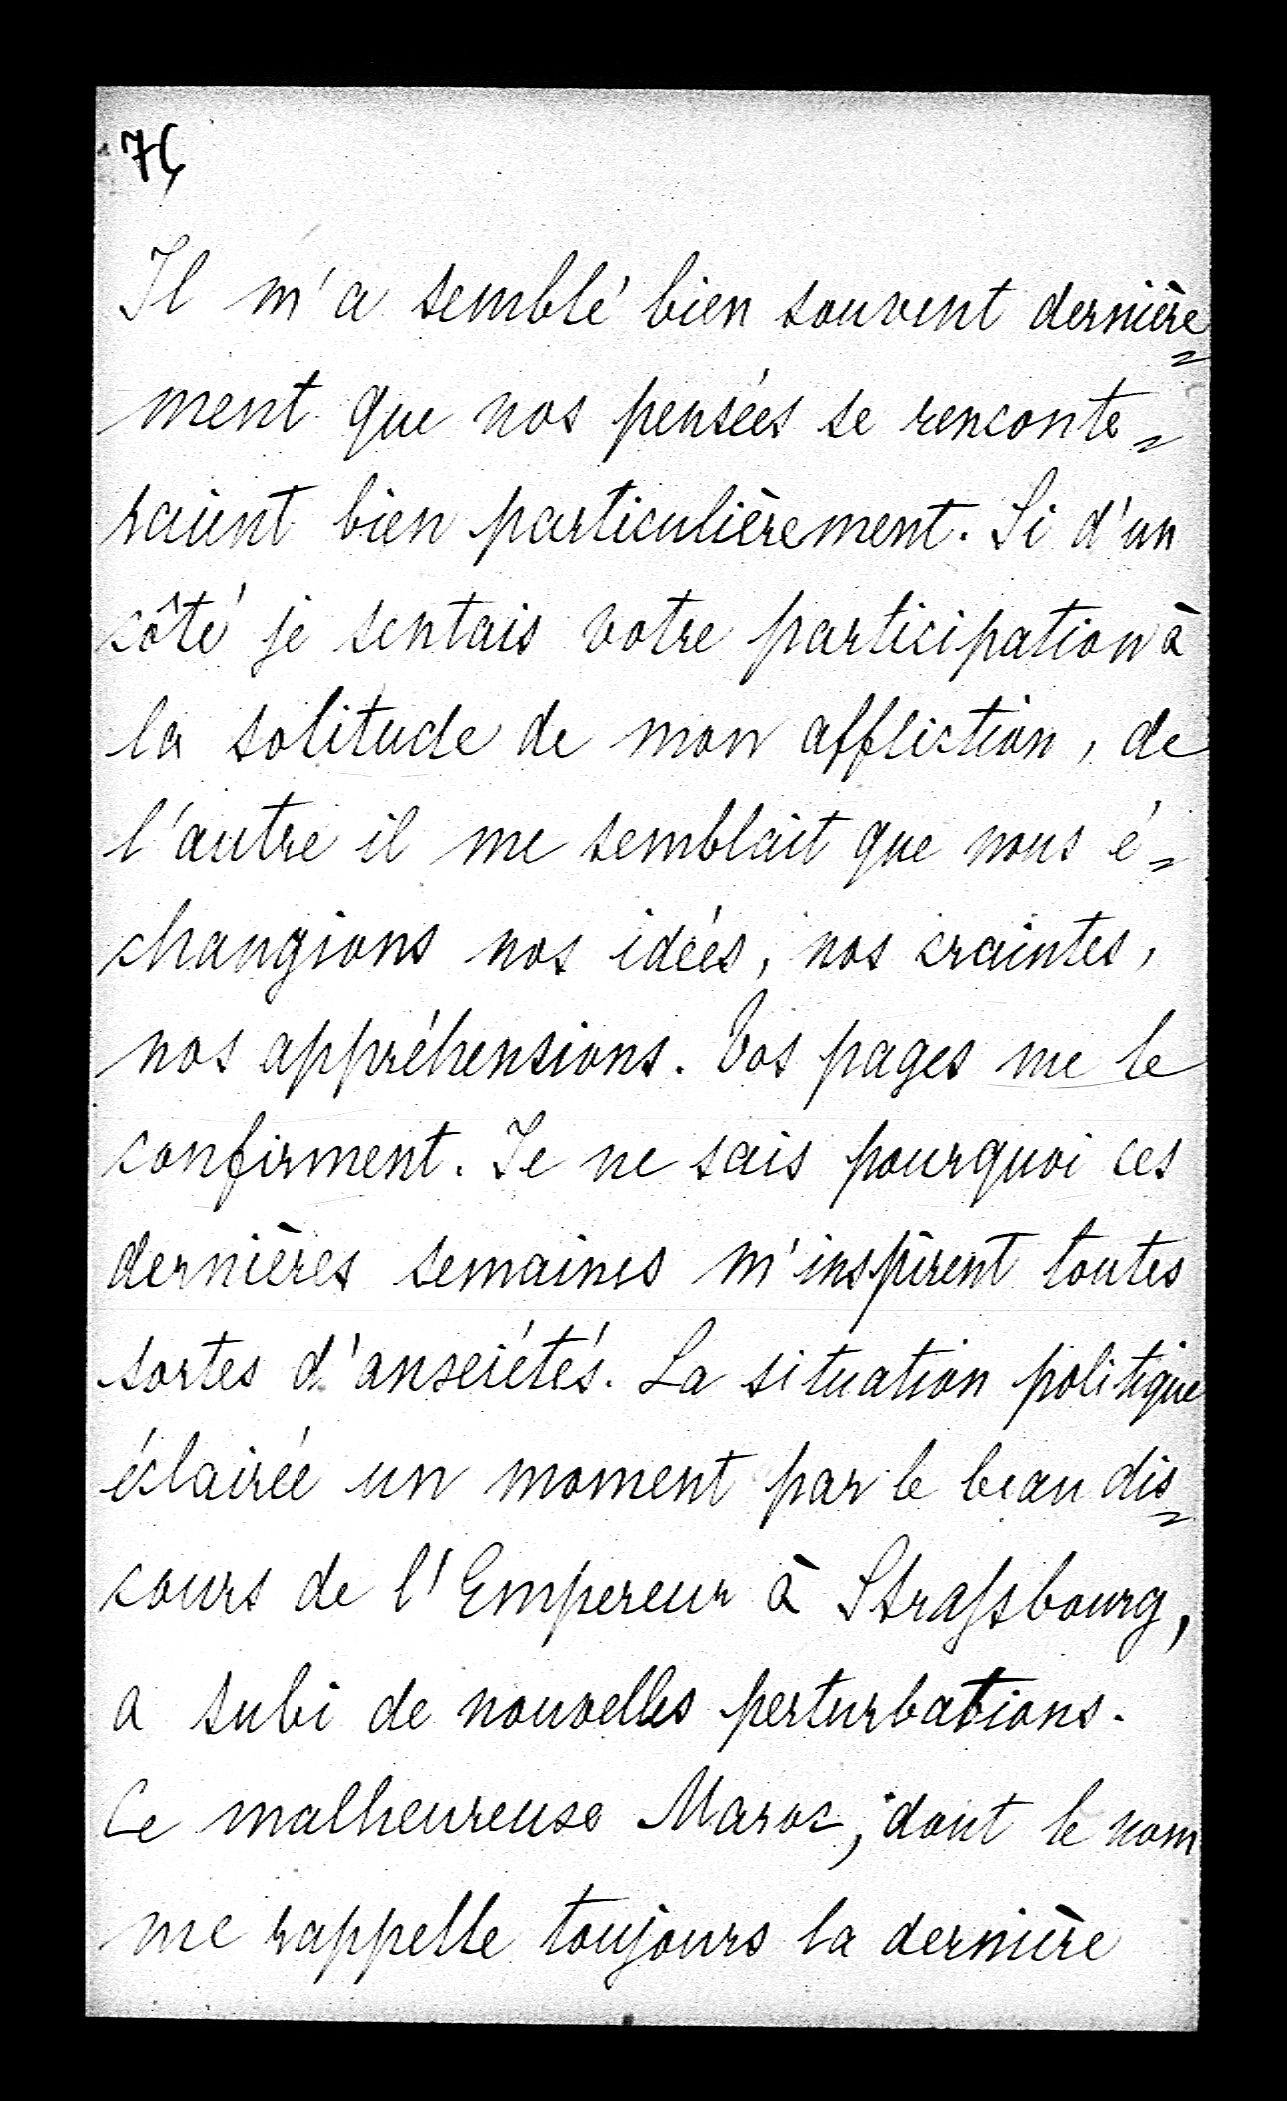 7(
Il m'a semblé bien souvent dernière=
ment que nos pensées se renconte=
raient bien particulièrement. Si d'un
côté je sentais votre participation à
la solitude de mon affliction, de
l'autre il me semblait que nous é=
changions nos idées, nos craintes,
nos appréhensions. Vos pages me le
confirment. Je ne sais pourquoi ces
dernières semaines m'inspirent toutes
sortes d'anxiétés. La situation politique
éclairée un moment par le beau dis=
cours de l'Empereur à Straſsbourg,
a subi de nouvelles perturbations.
Ce malheureuse Maroc, dont le nom
me rappelle toujours la dernière